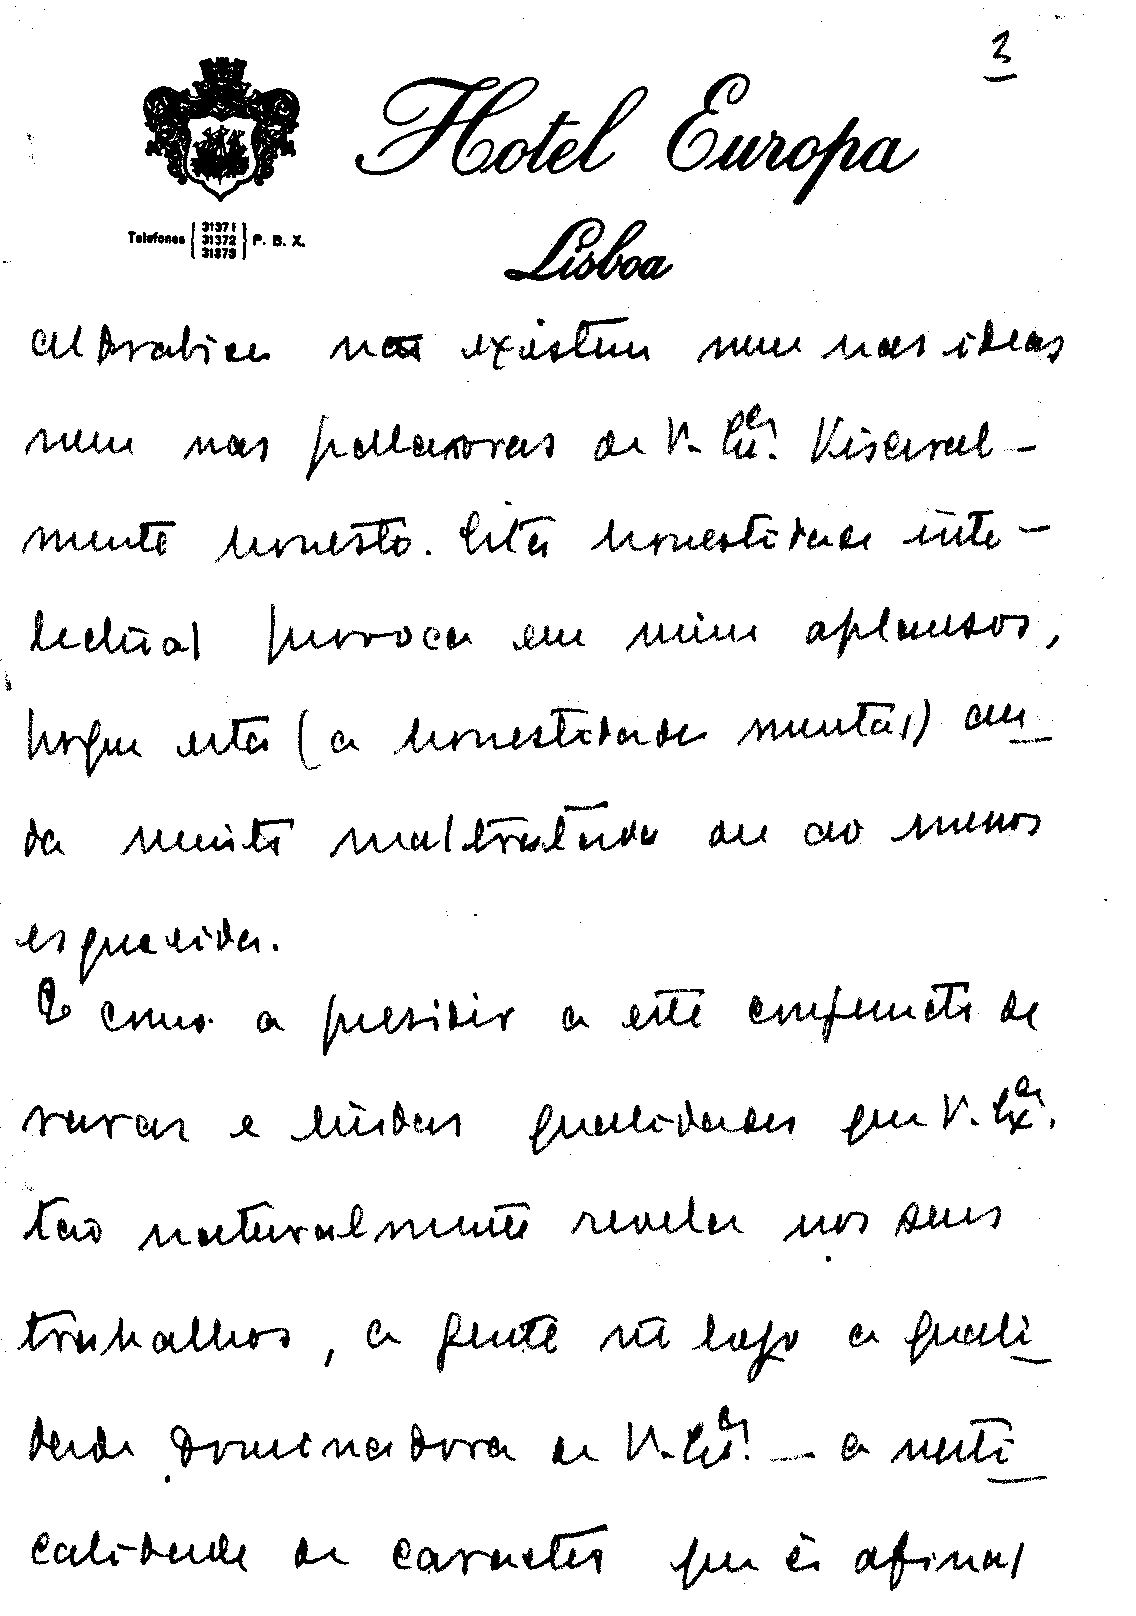 3
Hotel Europa
Lisboa
Telefones 31371 31372 31373 P. B. X.
aldrabices não existem nem nas ideas
nem nas palavras de V. Exª. Visceral-
mente honesto. Esta honestidade inte-
lectual provoca em mim aplausos,
porque esta (a honestidade mental) an-
da muito maltratada ou ao menos
esquecida.
E como a presidir a este conjuncto de
raras e lindas qualidades que V. Exª.
tão naturalmente revela nos seus
trabalhos, a gente vê logo a quali-
dade dominadora de V. Exª. — a verti-
calidade de caracter que é afinal